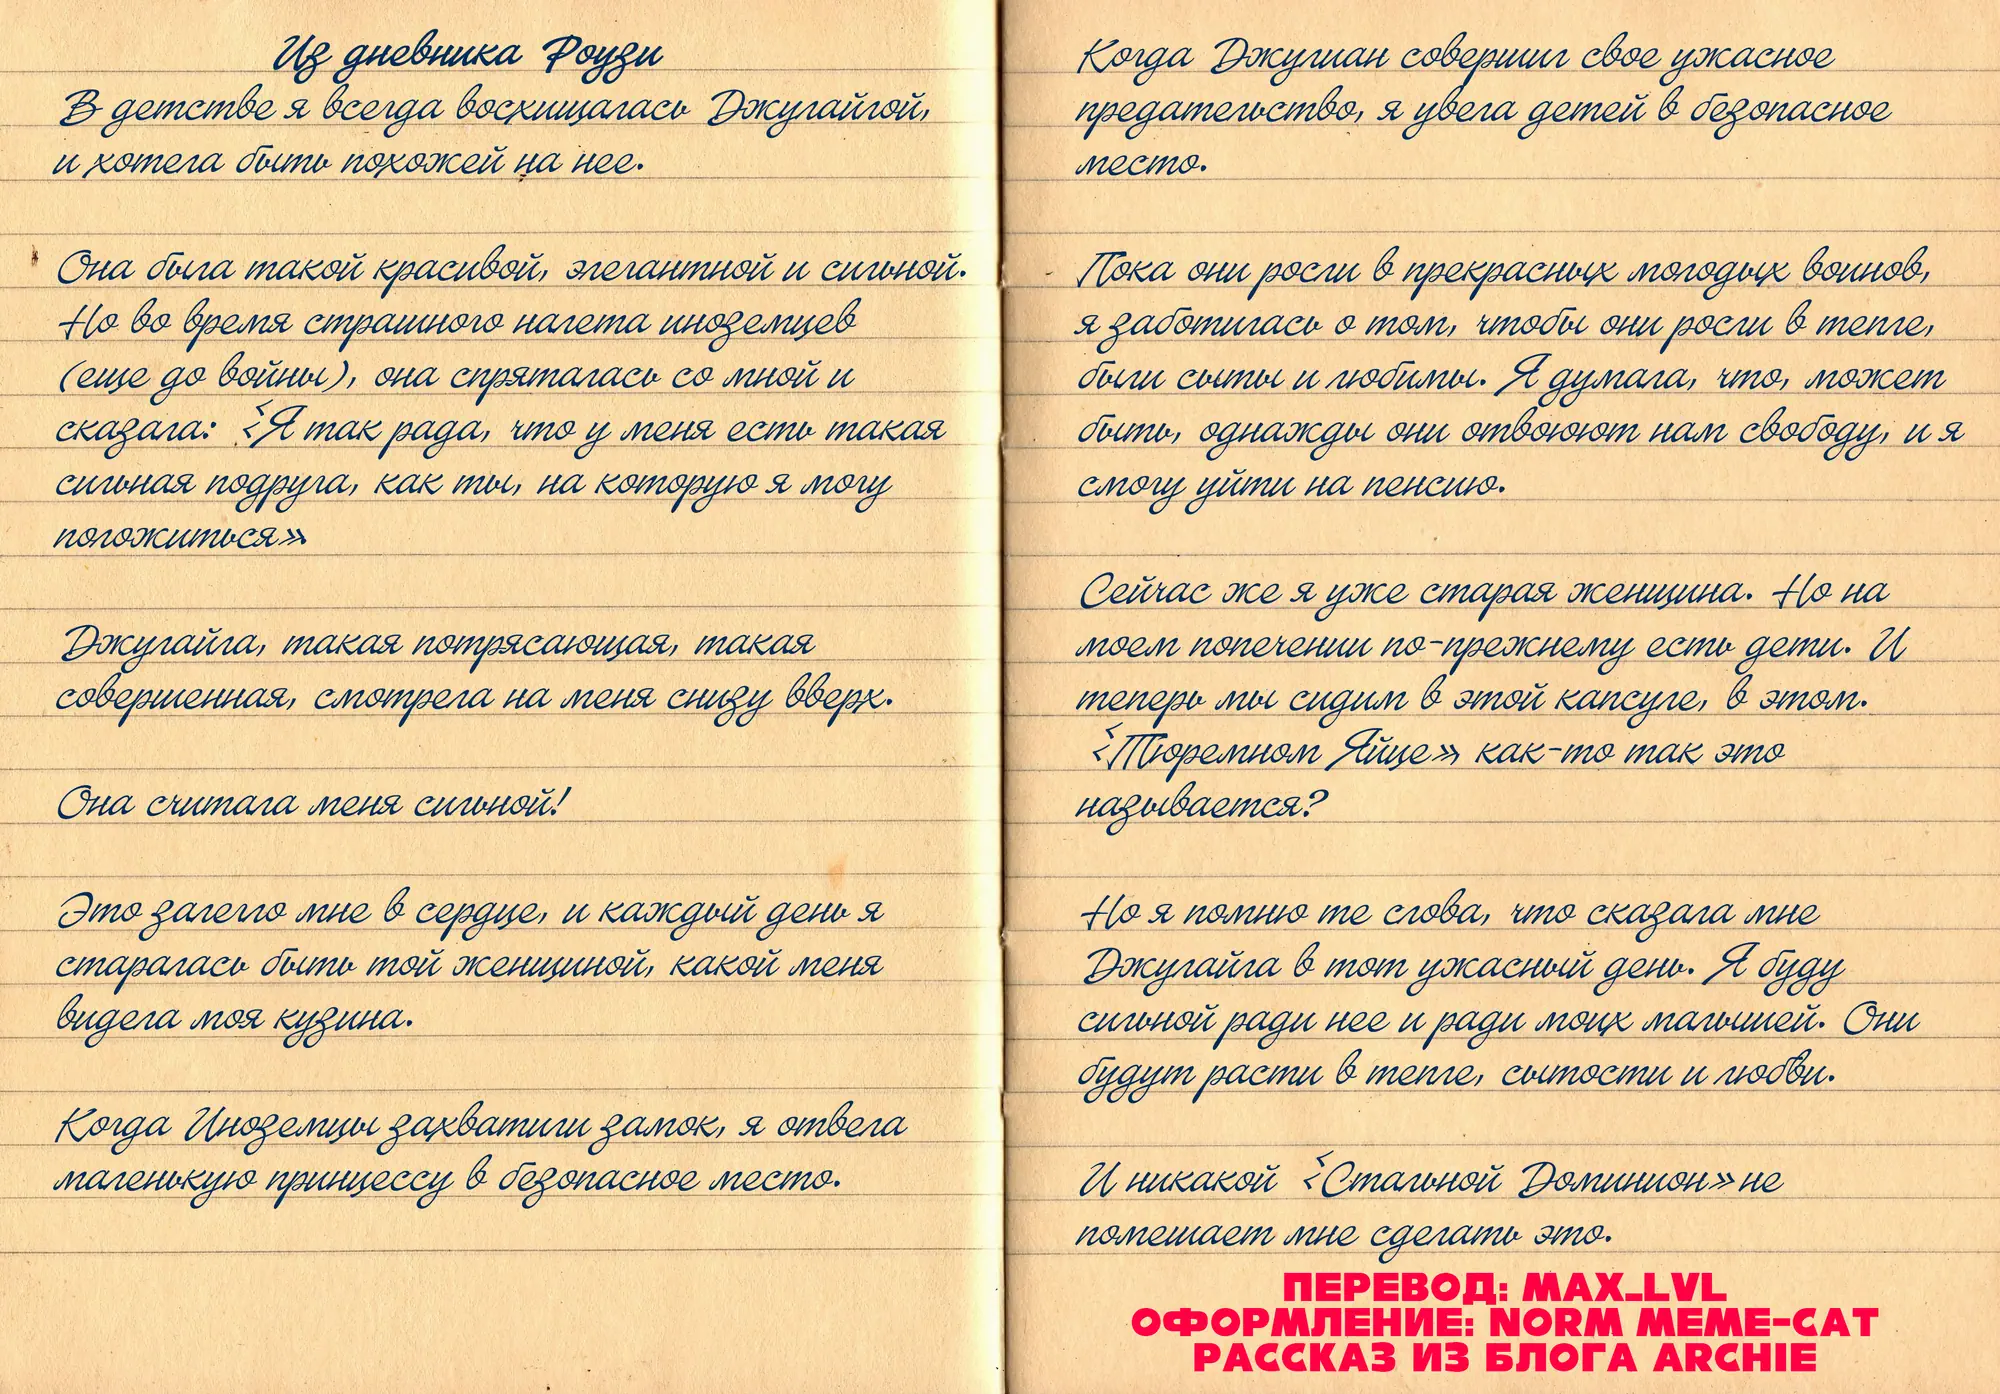 Из дневника Роузи
В детстве я всегда восхищалась Джулайлой,
и хотела быть похожей на нее.
Она была такой красивой, элегантной и сильной.
Но во время страшного налета иноземцев
(еще до войны), она спряталась со мной и
сказала: «Я так рада, что у меня есть такая
сильная подруга, как ты, на которую я могу
положиться»
Джулайла, такая потрясающая, такая
совершенная, смотрела на меня снизу вверх.
Она считала меня сильной!
Это залегло мне в сердце, и каждый день я
старалась быть той женщиной, какой меня
видела моя кузина.
Когда Иноземцы захватили замок, я отвела
маленькую принцессу в безопасное место.
Когда Джулиан совершил свое ужасное
предательство, я увела детей в безопасное
место.
Пока они росли в прекрасных молодых воинов,
я заботилась о том, чтобы они росли в тепле,
были сыты и любимы. Я думала, что, может
быть, однажды они отвоюют нам свободу, и я
смогу уйти на пенсию.
Сейчас же я уже старая женщина. Но на
моем попечении по-прежнему есть дети. И
теперь мы сидим в этой капсуле, в этом.
«Тюремном Яйце» как-то так это
называется?
Но я помню те слова, что сказала мне
Джулайла в тот ужасный день. Я буду
сильной ради нее и ради моих малышей. Они
будут расти в тепле, сытости и любви.
И никакой «Стальной Доминион» не
помешает мне сделать это.
ПЕРЕВОД: MAX_LVL
ОФОРМЛЕНИЕ: NORM MEME-CAT
РАССКАЗ ИЗ БЛОГА ARCHIE